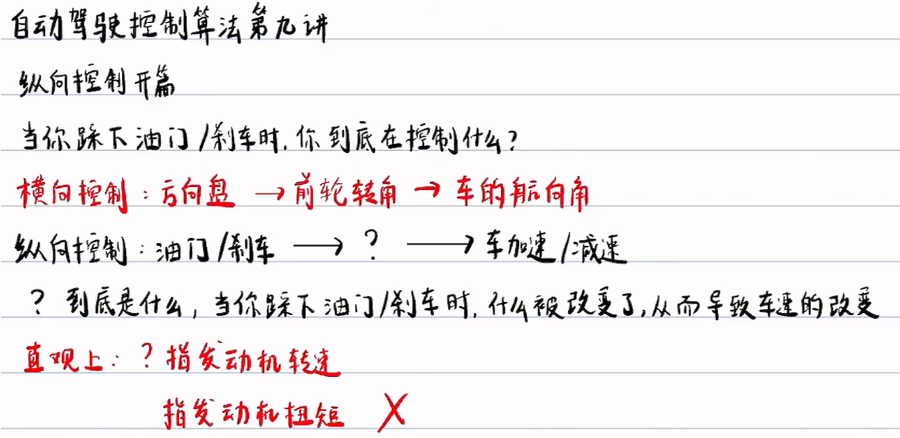 自动驾驶控制算法第九讲
纵向控制开篇
当你踩下油门/刹车时,你到底在控制什么?
横向控制:方向盘 → 前轮转角 → 车的航向角
纵向控制:油门/刹车 → ? → 车加速/减速
? 到底是什么, 当你踩下油门/刹车时, 什么被改变了,从而导致车速的改变
直观上: ? 指发动机转速
指发动机扭短 X